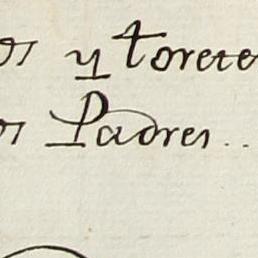 os y torete
os Padres..